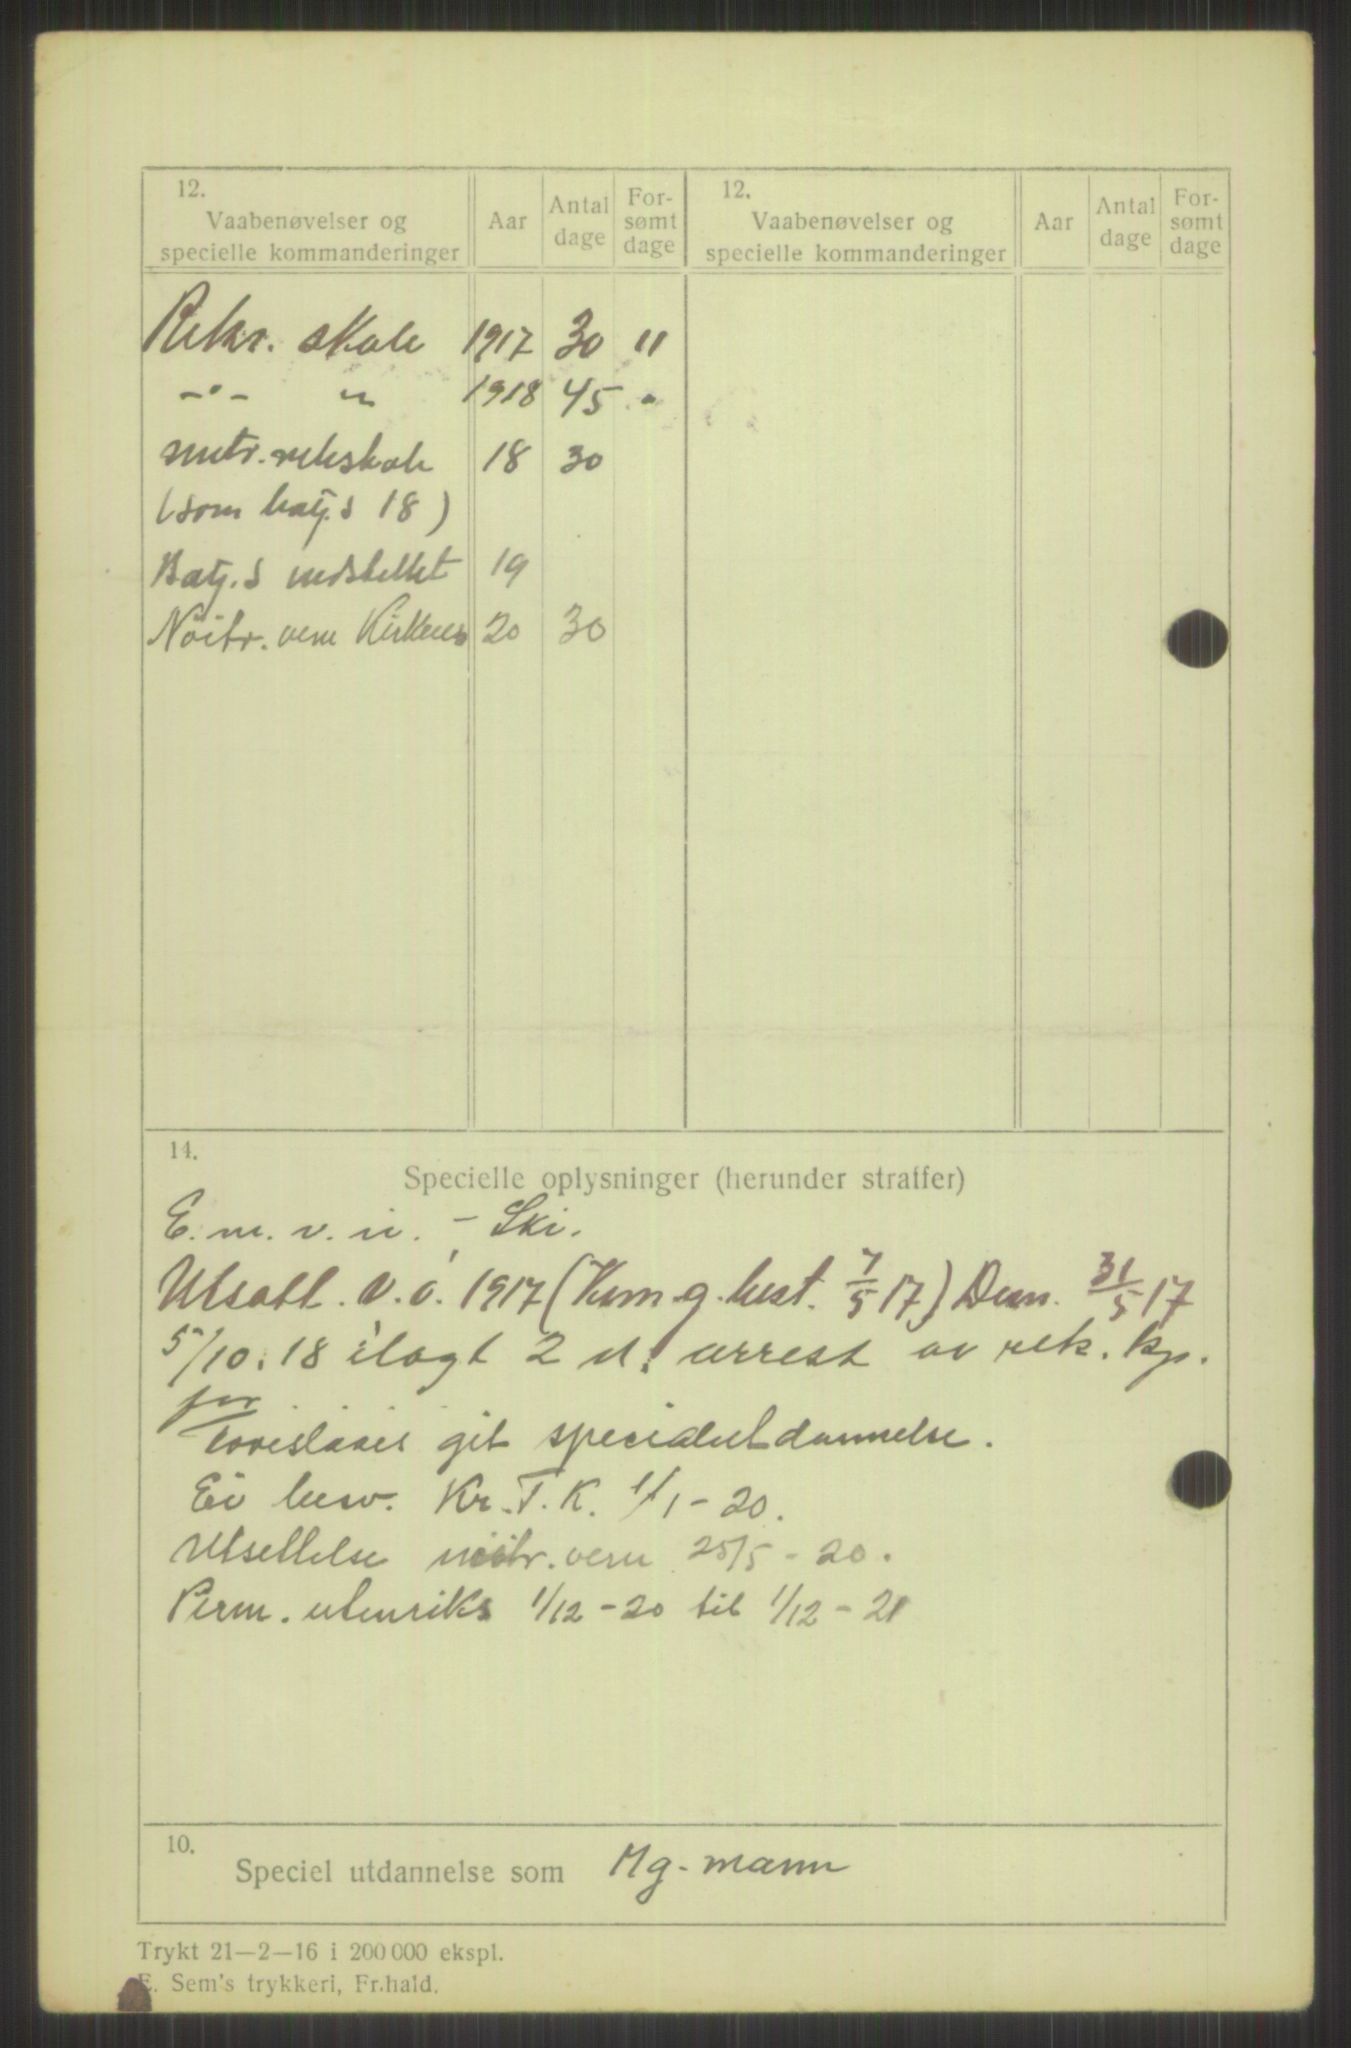 12.
Vaabenøvelser og
specielle kommanderinger
Aar
Antal
dage
For-
sømt
dage
12.
Vaabenøvelser og
specielle kommanderinger
Aar
Antal
dage
For-
sømt
dage
Rekr. skole 1917 30 "
-"- " 1918 45 "
mitr. rekskole 18 30
(som batj.s 18)
Batj.s indstillet 19
Nøitr. vern Kirkenes 20 30
14.
Specielle oplysninger (herunder straffer)
E. m. v. u. - Ski.
Utsatt. v. ö. 1917 (Kom g. best. 7/5 17) 31/5 17
5/10. 18 ilagt 2 d. arrest av rek. kp.
for
git specialutdannelse.
Ei Kr. T. K. 1/1-20.
Utsettelse nöitr. vern 25/5-20.
Perm. utenriks 1/12-20 til 1/12-21
10.
Speciel utdannelse som Mg-mann
Trykt 21—2—16 i 200 000 ekspl.
E. Sem's trykkeri, Fr.hald.